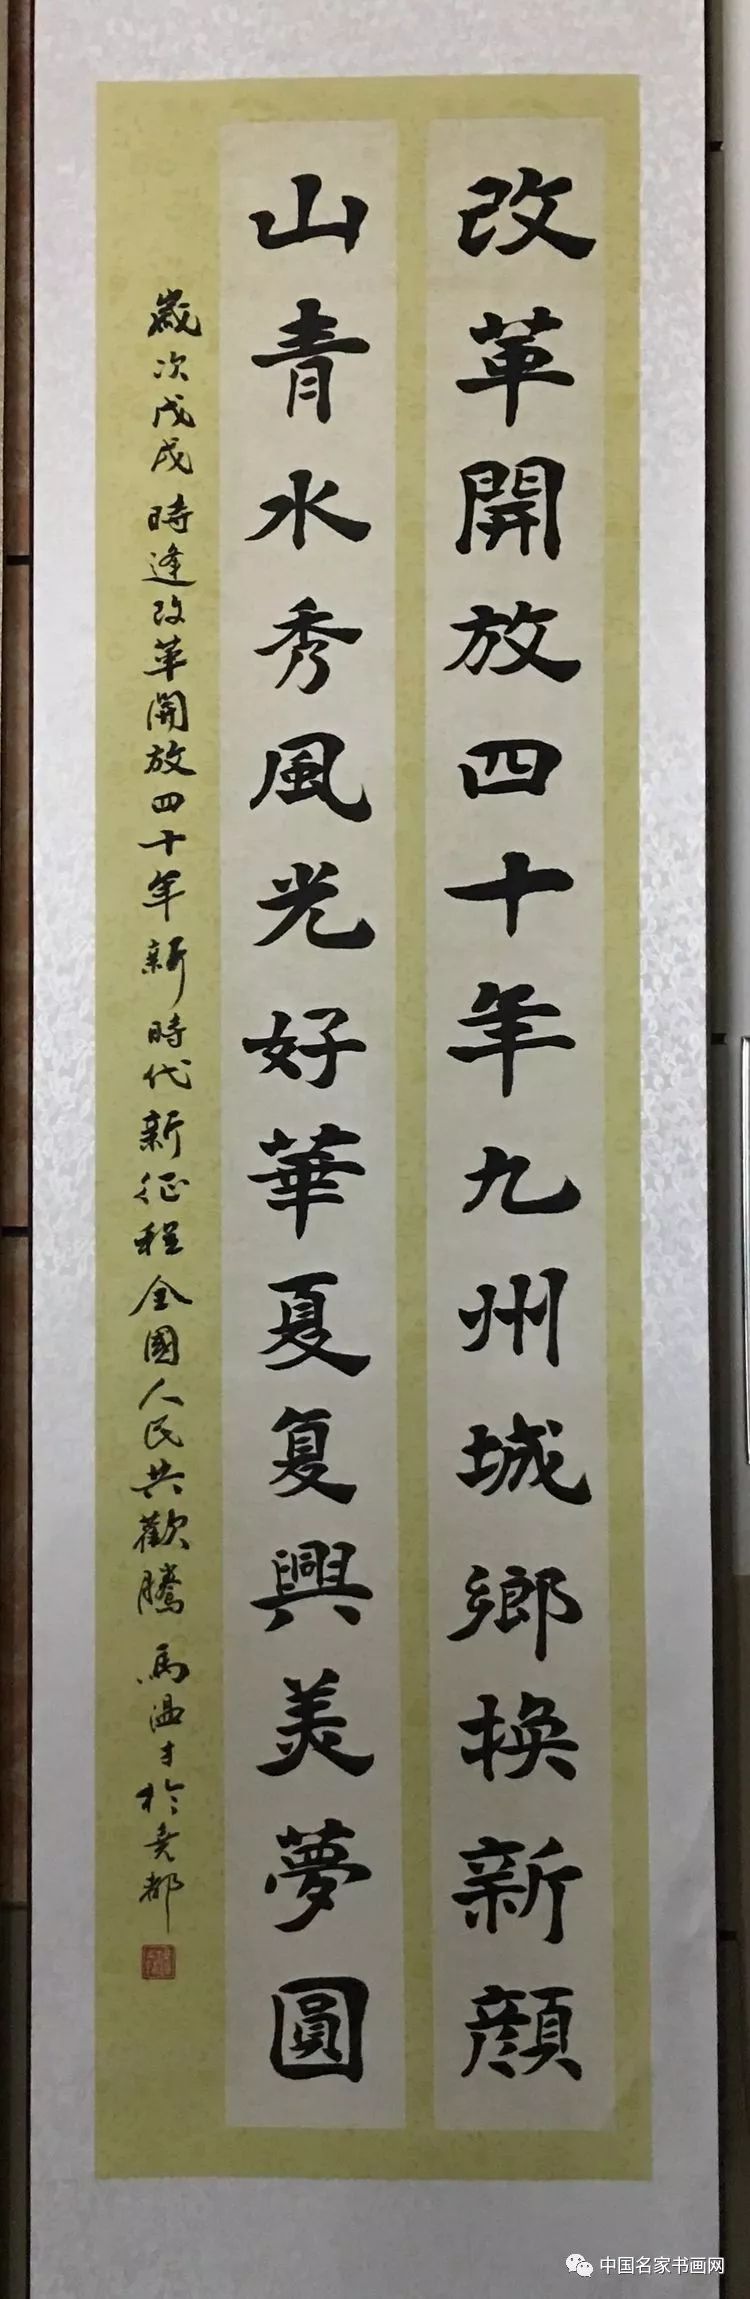 改革開放四十年九州城鄉换新顔
山青水秀風光好華夏复興美夢圓
歲次戊戌時逢改革開放四十年新時代新征程全國人民共歡騰馬温才於堯都
中国名家书画网